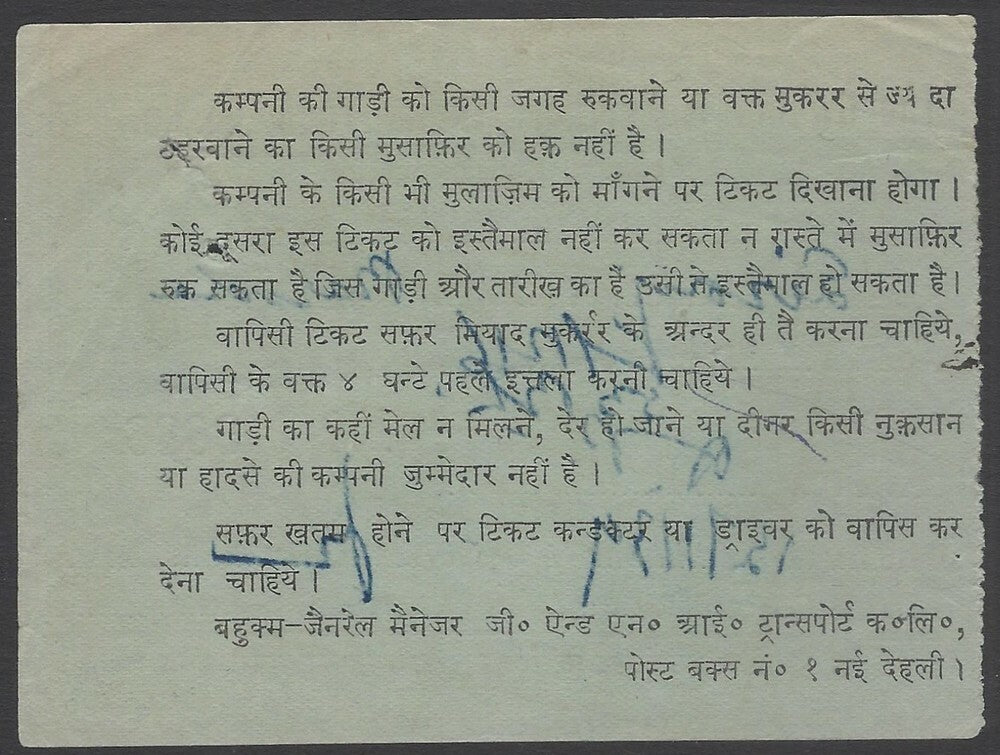 कम्पनी की गाड़ी को किसी जगह रुकवाने या वक्त मुकरर से ज्य दा
ठहरवाने का किसी मुसाफ़िर को हक़ नहीं है ।
कम्पनी के किसी भी मुलाज़िम को माँगने पर टिकट दिखाना होगा ।
कोई दूसरा इस टिकट को इस्तैमाल नहीं कर सकता न रास्ते में मुसाफ़िर
रुक सकता है जिस गाड़ी और तारीख का है उसी से इस्तैमाल हो सकता है।
वापिसी टिकट सफ़र मियाद मुकर्रर के अन्दर ही तै करना चाहिये,
वापिसी के वक्त ४ घन्टे पहले इत्तला करनी चाहिये ।
गाड़ी का कहीं मेल न मिलने, देर हो जाने या दीगर किसी नुक़सान
या हादसे की कम्पनी जुम्मेदार नहीं है ।
सफ़र खतम होने पर टिकट कन्डक्टर या ड्राइवर को वापिस कर
देना चाहिये ।
बहुक्म—जैनरेल मैनेजर जी० ऐन्ड एन० आई० ट्रान्सपोर्ट क०लि०,
पोस्ट बक्स नं० १ नई देहली ।